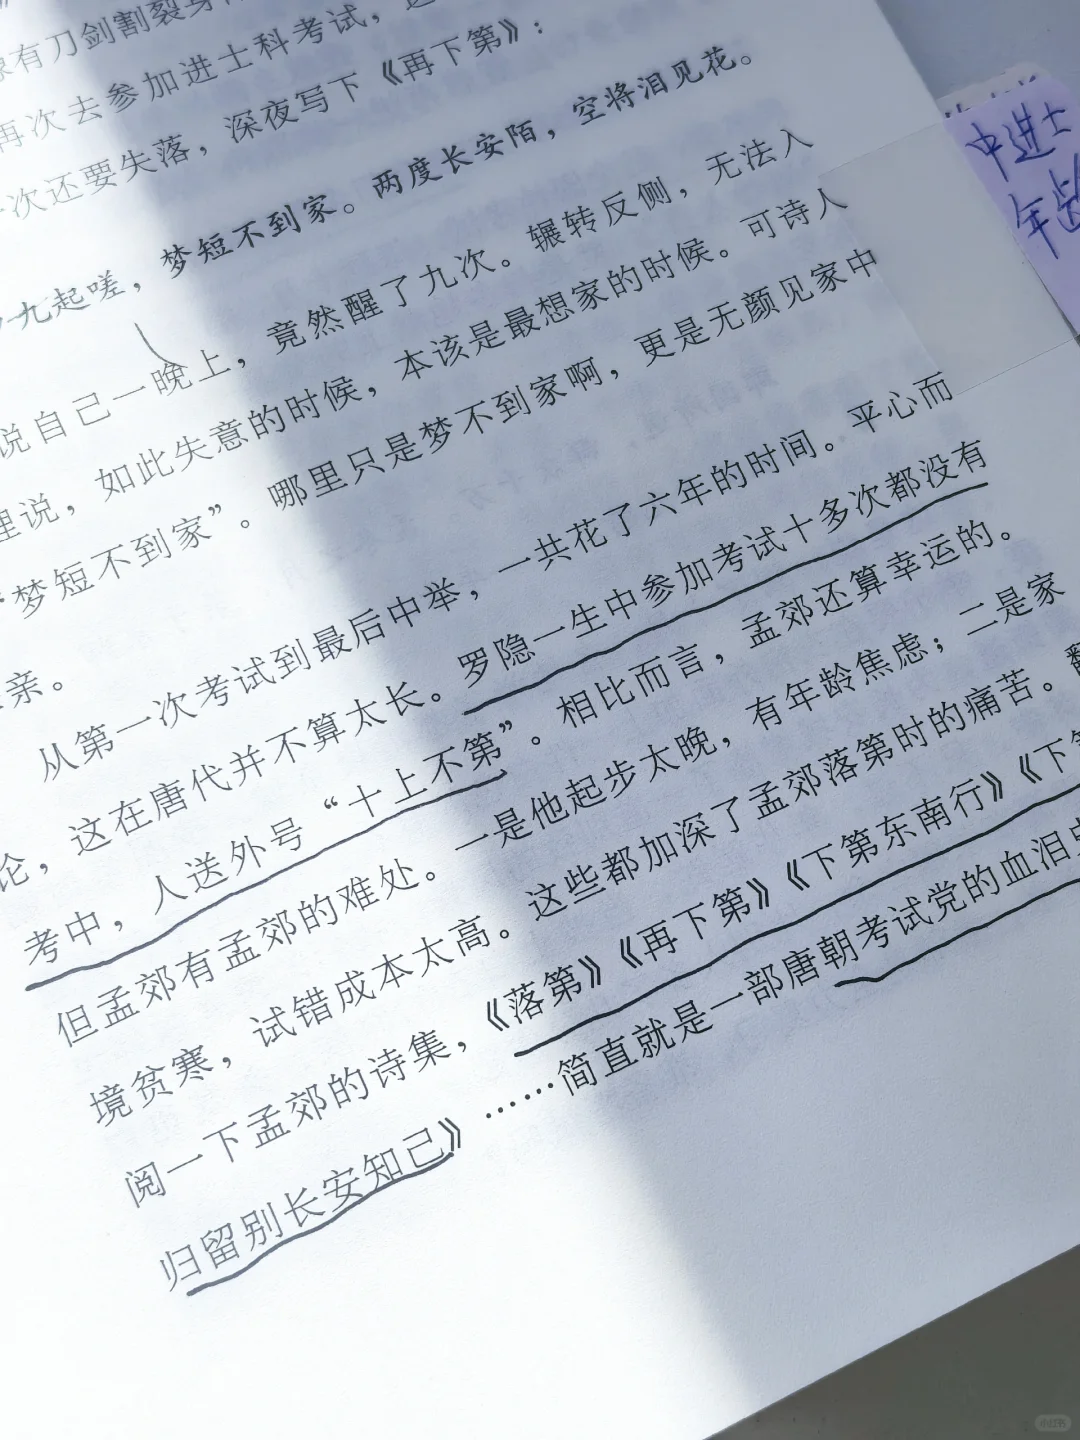 有刀剑割裂身
再次去参加进士科考试，这
次还要失落，深夜写下《再下第》：
九起嗟，梦短不到家。两度长安陌，空将泪见花。
说自己一晚上，竟然醒了九次。辗转反侧，无法入
理说，如此失意的时候，本该是最想家的时候。可诗人
“梦短不到家”。哪里只是梦不到家啊，更是无颜见家中
亲。
从第一次考试到最后中举，一共花了六年的时间。平心而
论，这在唐代并不算太长。罗隐一生中参加考试十多次都没有
考中，人送外号“十上不第”。相比而言，孟郊还算幸运的。
但孟郊有孟郊的难处。一是他起步太晚，有年龄焦虑；二是家
境贫寒，试错成本太高。这些都加深了孟郊落第时的痛苦。翻
阅一下孟郊的诗集，《落第》《再下第》《下第东南行》《下第
归留别长安知己》……简直就是一部唐朝考试党的血泪史
中进士
年龄
小红书